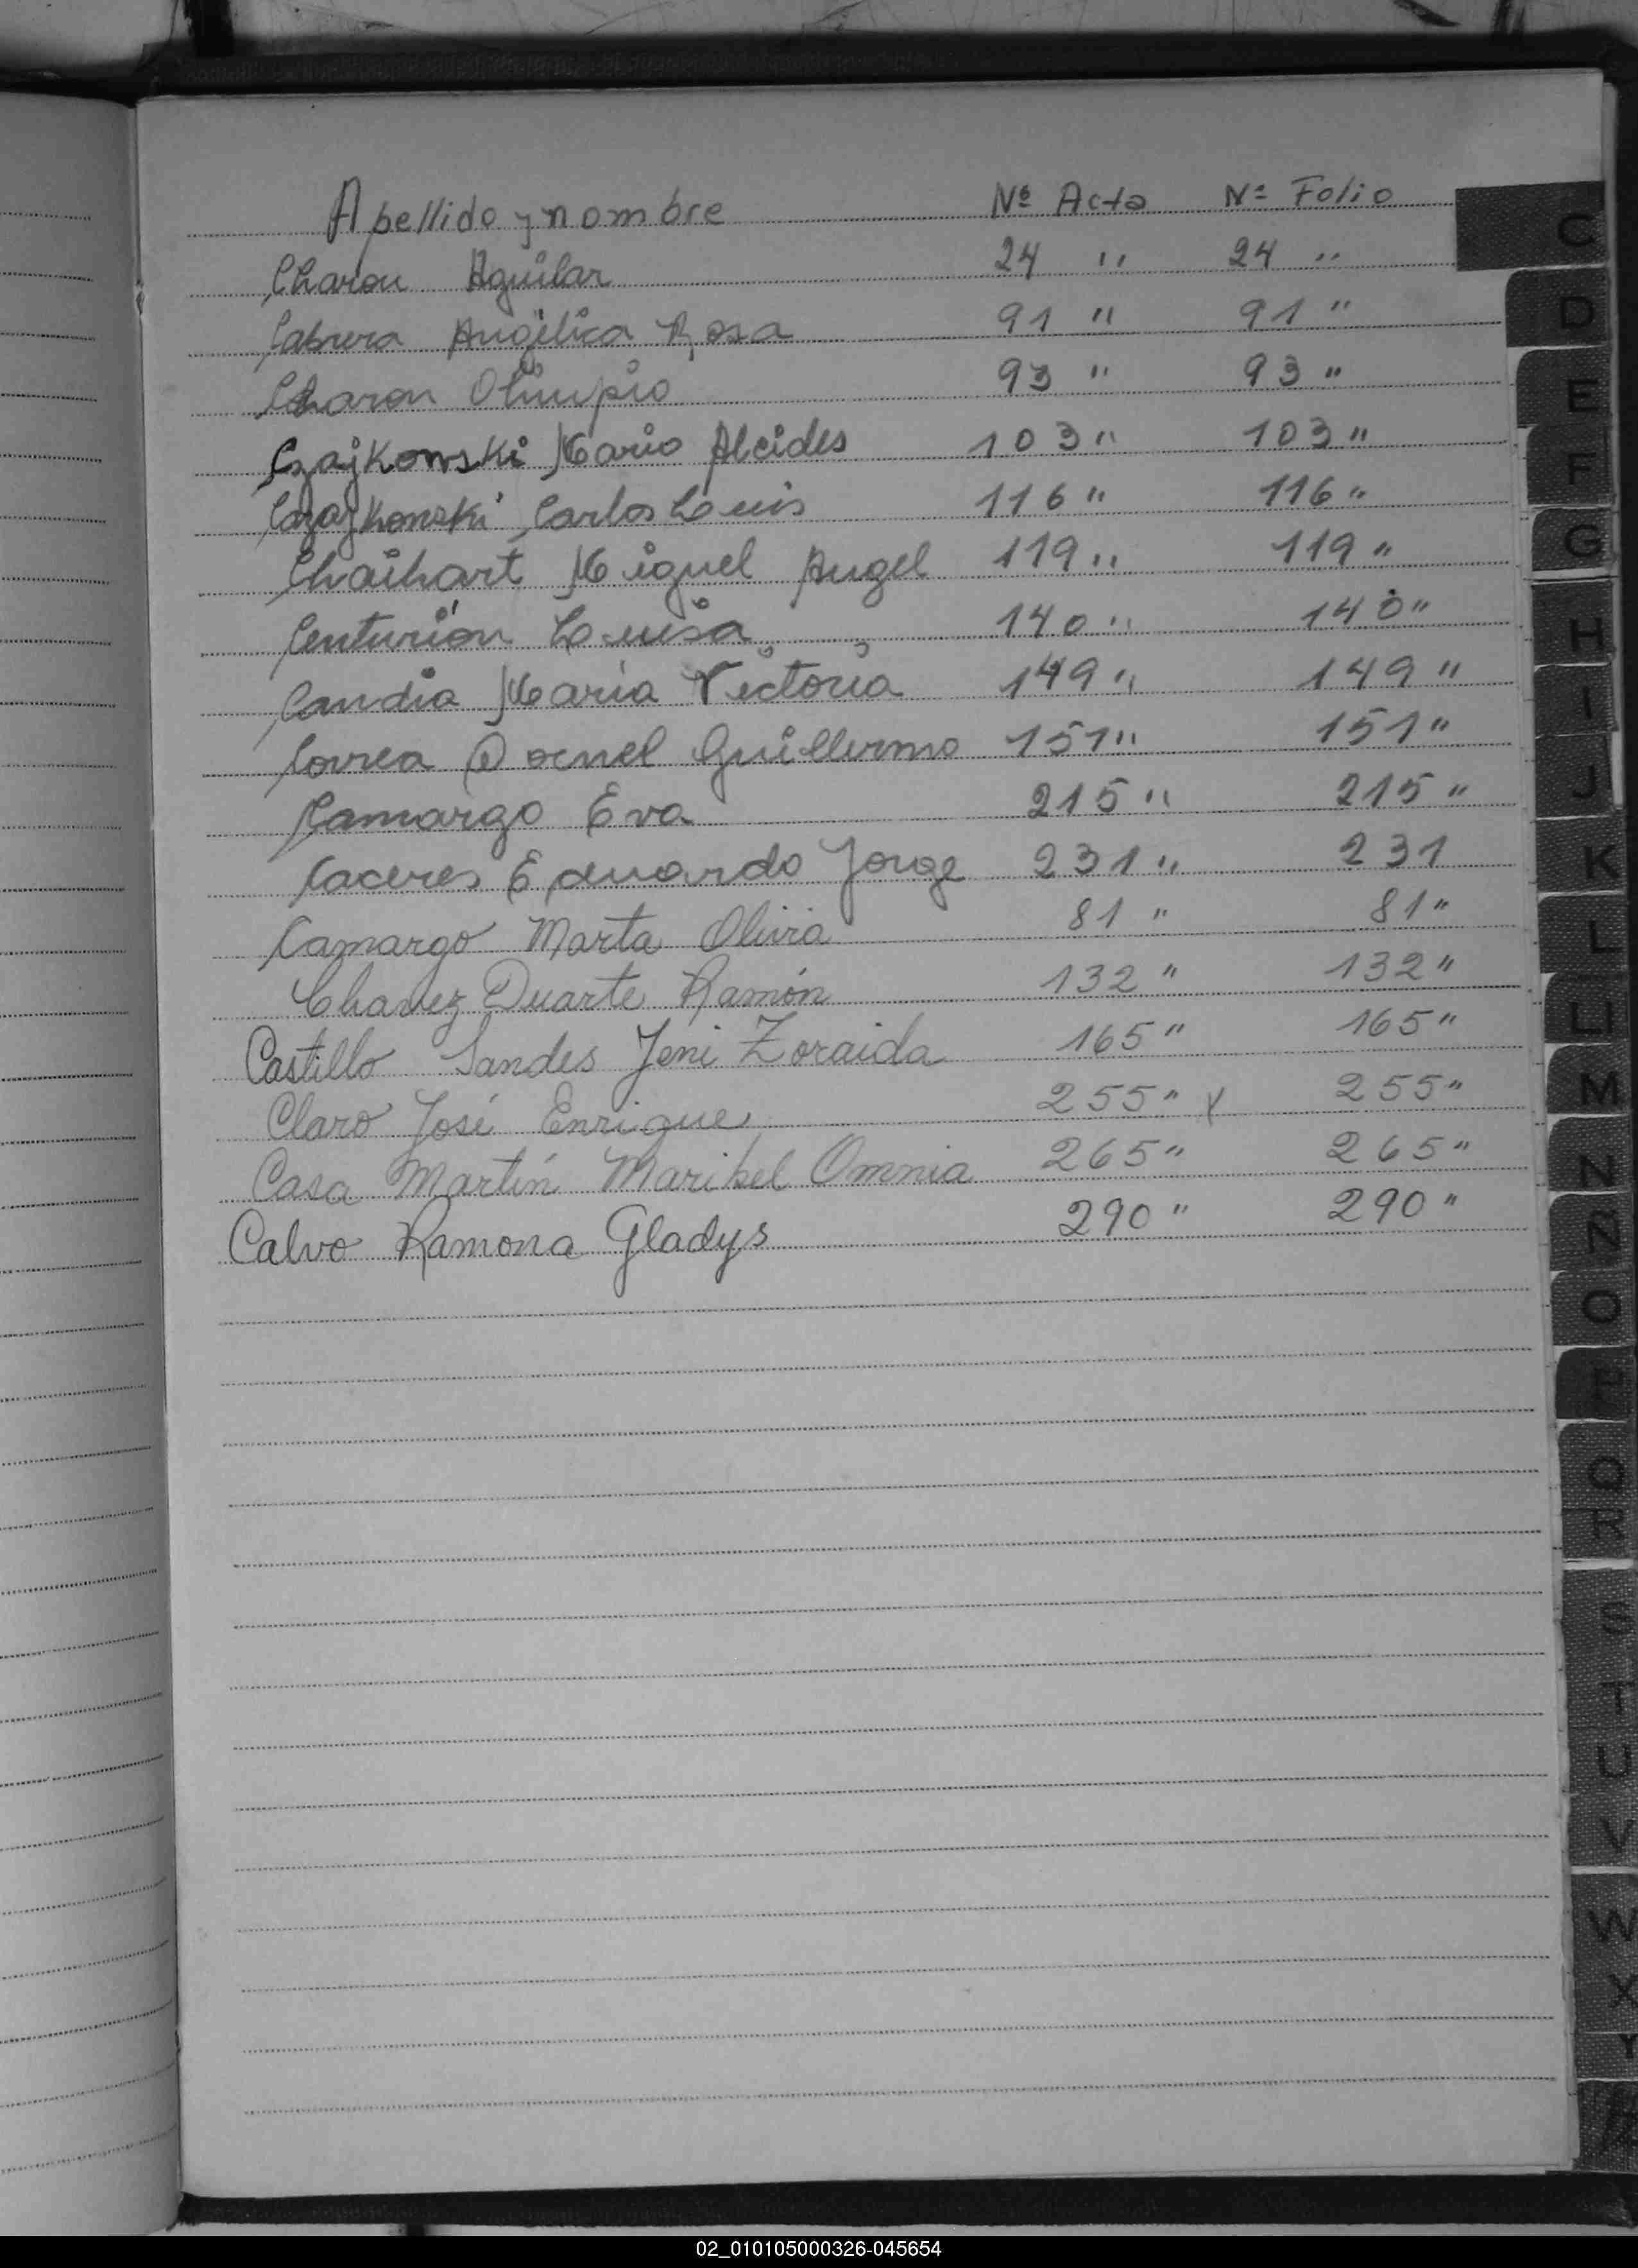 Apellido y nombre Nº Acta Nº Folio
Charon Aguilar 24 " 24 "
Cabrera Angélica Rosa 91 " 91 "
Charon Olimpio 93 " 93 "
Czajkowski Mario Alcides 103 " 103 "
Czajkonski Carlos Luis 116 " 116 "
Chaihart Miguel Angel 119 " 119 "
Centurión Luisa 140 " 140 "
Candia María Victoria 149 " 149 "
Correa Guillermo 151 " 151 "
Camargo Eva 215 " 215 "
Caceres Eduardo Jorge 231 " 231
Camargo Marta Olivia 81 " 81 "
Chavez Duarte Ramón 132 " 132 "
Castillo Sandes Jeni Zoraida 165 " 165 "
Claro José Enrique 255 " x 255 "
Casa Martín Maribel Omnia 265 " 265 "
Calvo Ramona Gladys 290 " 290 "
C
D
E
F
G
H
I
J
K
L
LL
M
N
Ñ
O
P
Q
R
S
T
U
V
W
X
Y
02_010105000326-045654